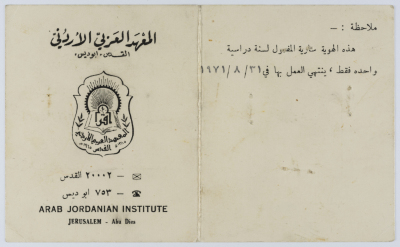 المعهد العربي الأردني
القدس - ابوديس
اقرأ
المعهد العربي الأردني
القدس
✉ ٢٠٠٠٢ القدس
☎ ٧٥٣ ابو ديس
ARAB JORDANIAN INSTITUTE
JERUSALEM - Abu Dies
ملاحظة : —
هذه الهوية سارية المفعول لسنة دراسية
واحده فقط ، ينتهي العمل بها في ٣١ / ٨ / ١٩٧١